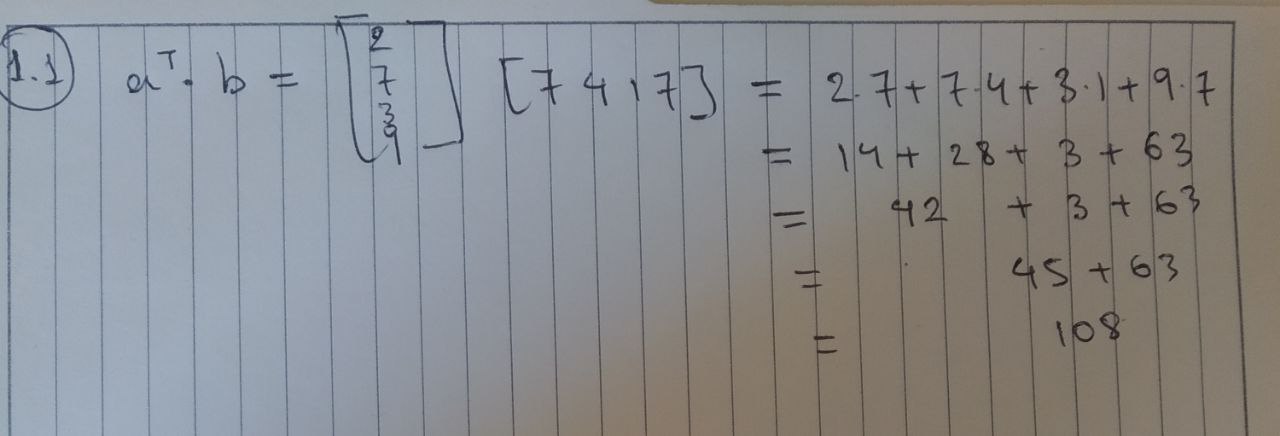 1.1 aᵀ · b = [2 7 3 9] [7 4 1 7] = 2·7 + 7·4 + 3·1 + 9·7
= 14 + 28 + 3 + 63
= 42 + 3 + 63
= 45 + 63
= 108